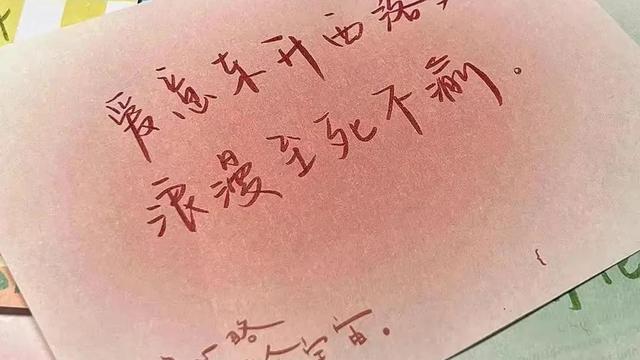 爱意东升西落
浪漫至死不渝.
路
个宇宙.